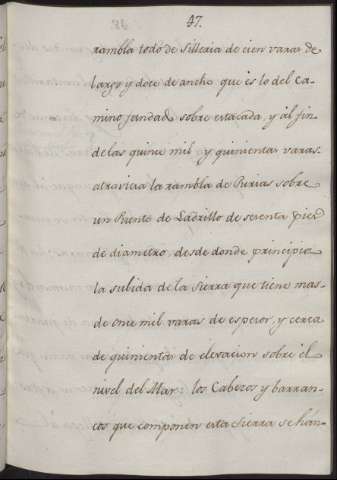 47.
rambla todo de Silleria de cien varas de
largo y doce de ancho que es lo del Ca-
mino fundado sobre estacada, y al fin
de las quince mil y quinientas varas
atraviesa la rambla de Purias sobre
un Puente de Ladrillo de sesenta pies
de diametro desde donde principia
la subida de la Sierra que tiene mas
de once mil varas de espesor, y cerca
de quinientas de elevacion sobre el
nivel del Mar: los Cabezos y barran-
cos que componen esta Sierra se han